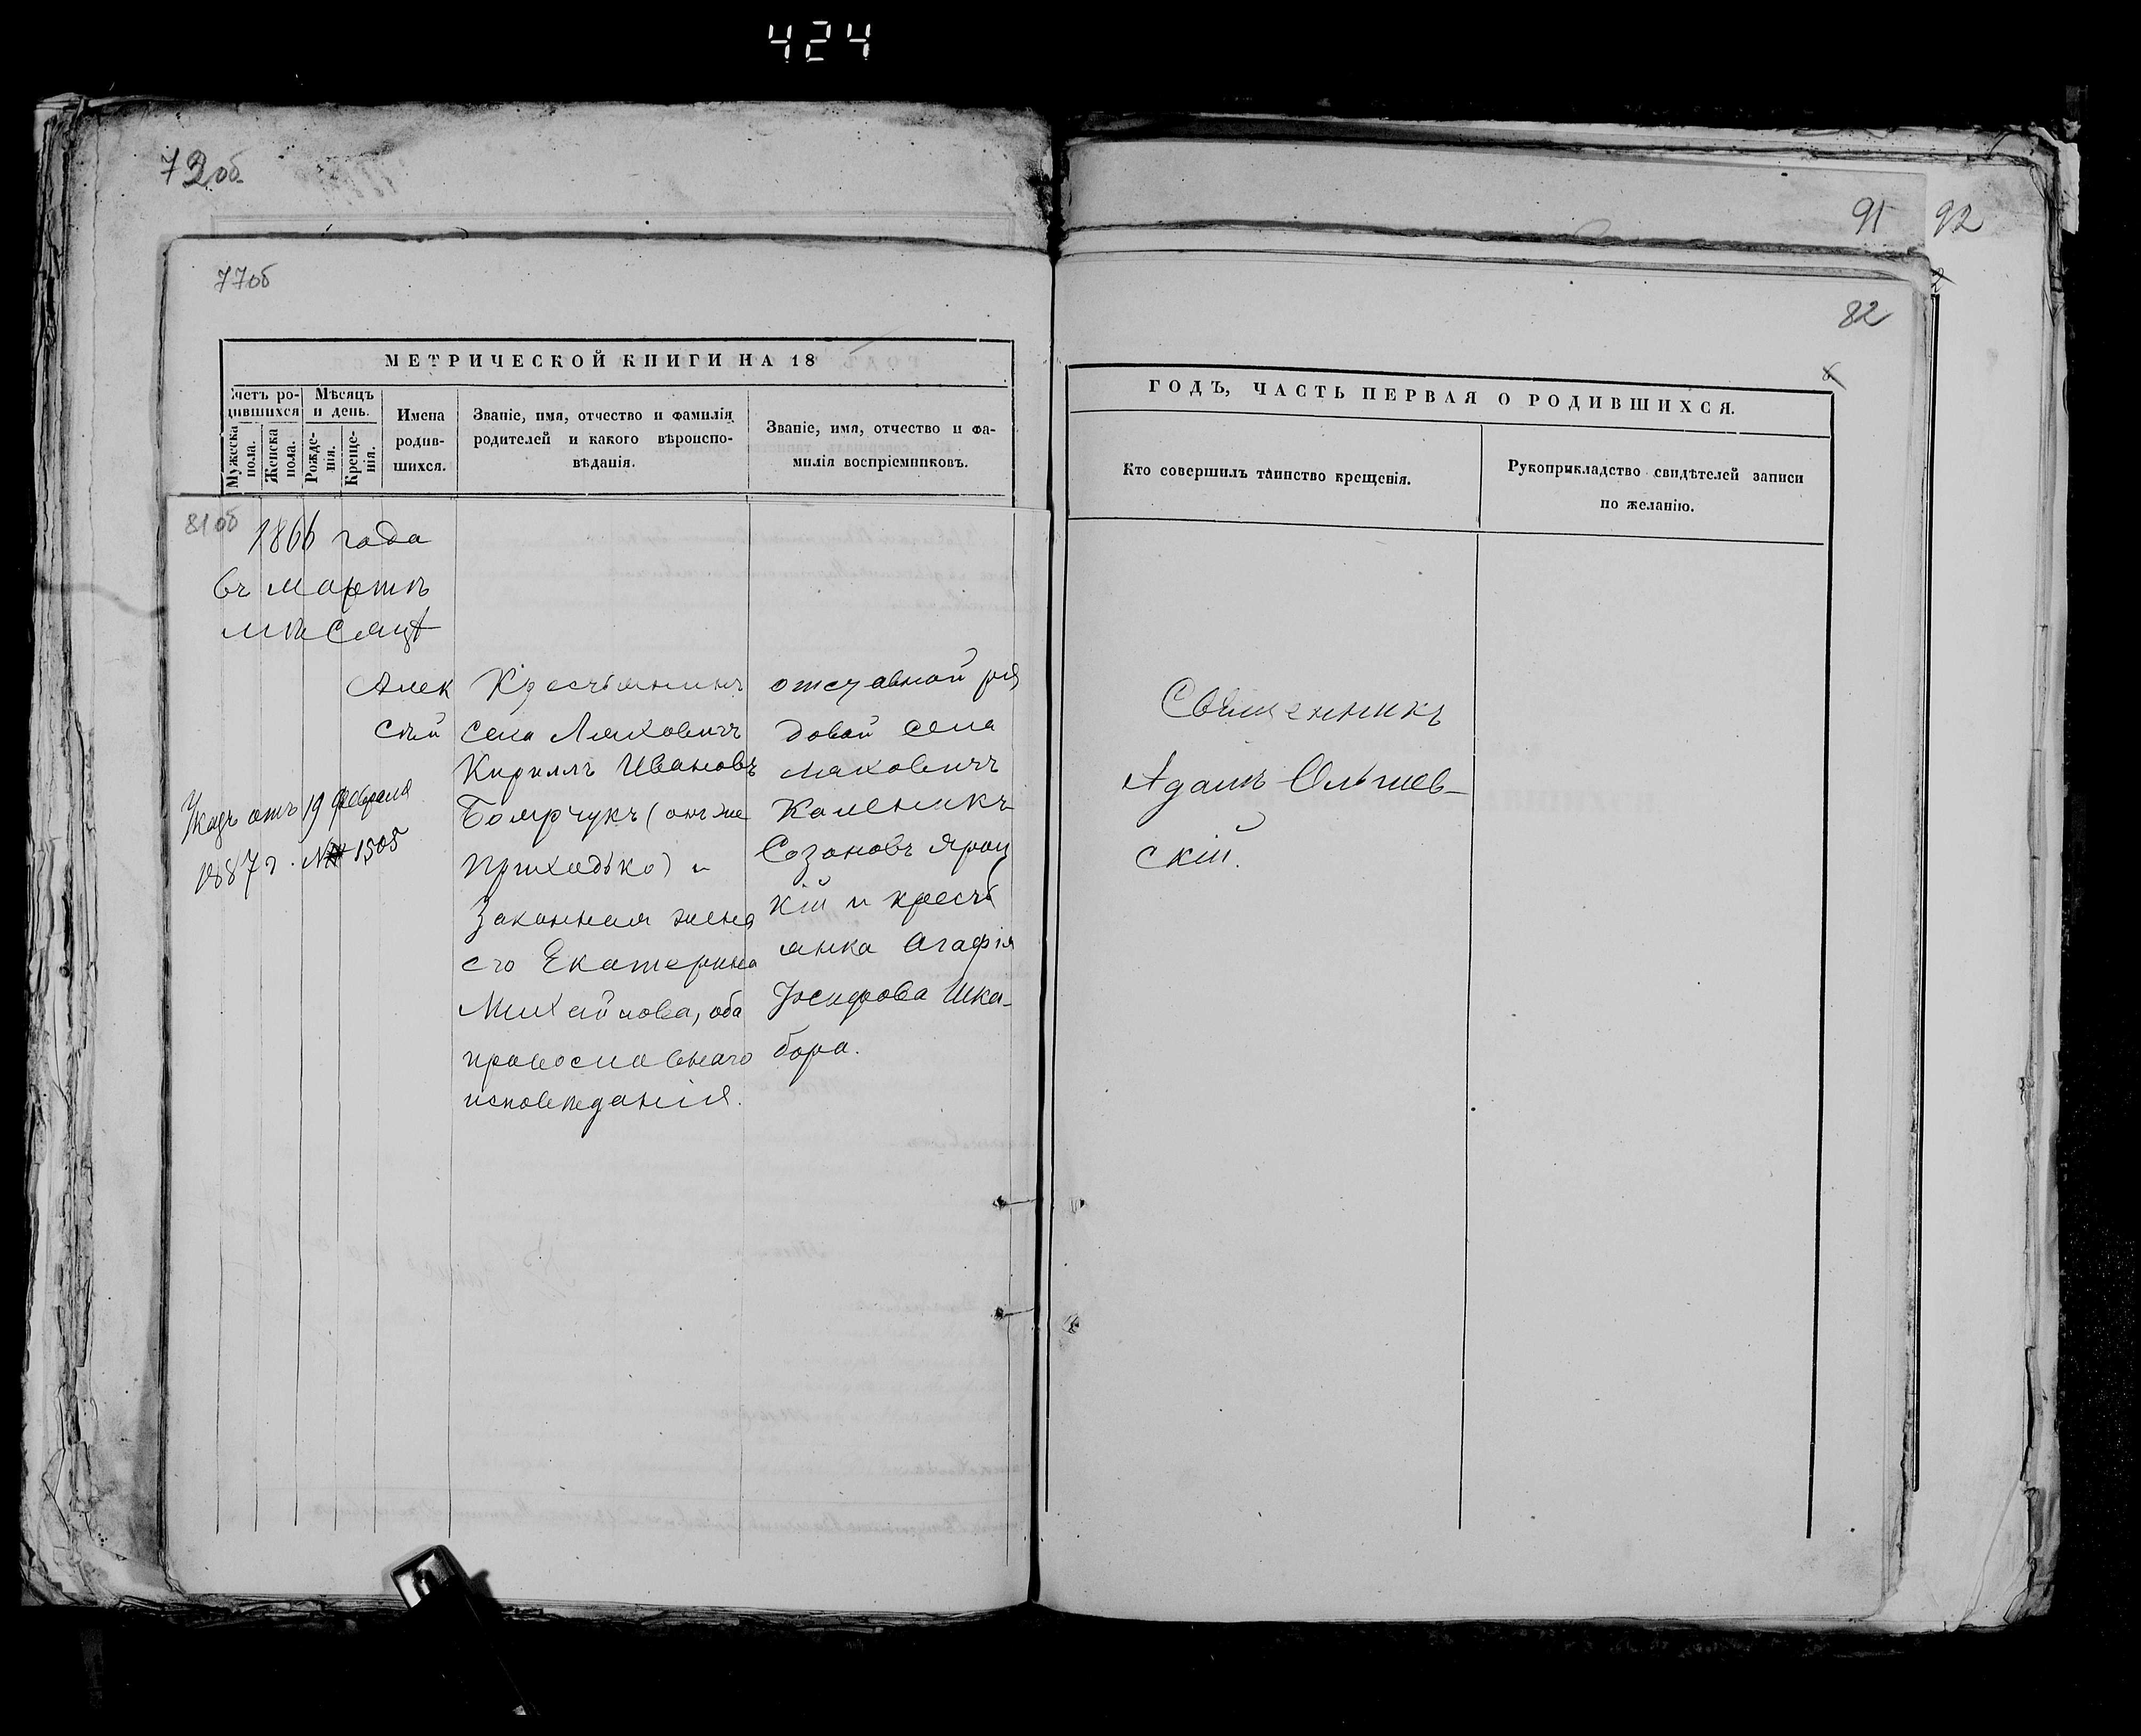 424
72об
91
92
77об
82
МЕТРИЧЕСКОЙ КНИГИ НА 18
Счетъ ро-
дившихся
Мѣсяцъ
и день.
Мужеска
пола.
Женска
пола.
Рожде-
нія.
Креще-
нія.
Имена
родив-
шихся.
Званіе, имя, отчество и фамилія
родителей и какого вѣроиспо-
вѣданія.
Званіе, имя, отчество и фа-
милія воспріемниковъ.
81об
1866 года
въ мартѣ
мѣсяцѣ
Алек
сѣй
Указъ отъ 19 февраля
1887 г. № 1505
Крестьянинъ
села Ляховичъ
Кириллъ Ивановъ
(онъ же
Приходько) и
законная жена
его Екатерина
Михайлова, оба
православнаго
исповѣданія.
отставной ря
довой села
Ляховичъ
Каленикъ
Созоновъ Яроц
кій и кресть
янка Агафія
Іосифова Шка-
бора.
ГОДЪ, ЧАСТЬ ПЕРВАЯ О РОДИВШИХСЯ.
Кто совершилъ таинство крещенія.
Рукоприкладство свидѣтелей записи
по желанію.
Священникъ
Адамъ
скій.